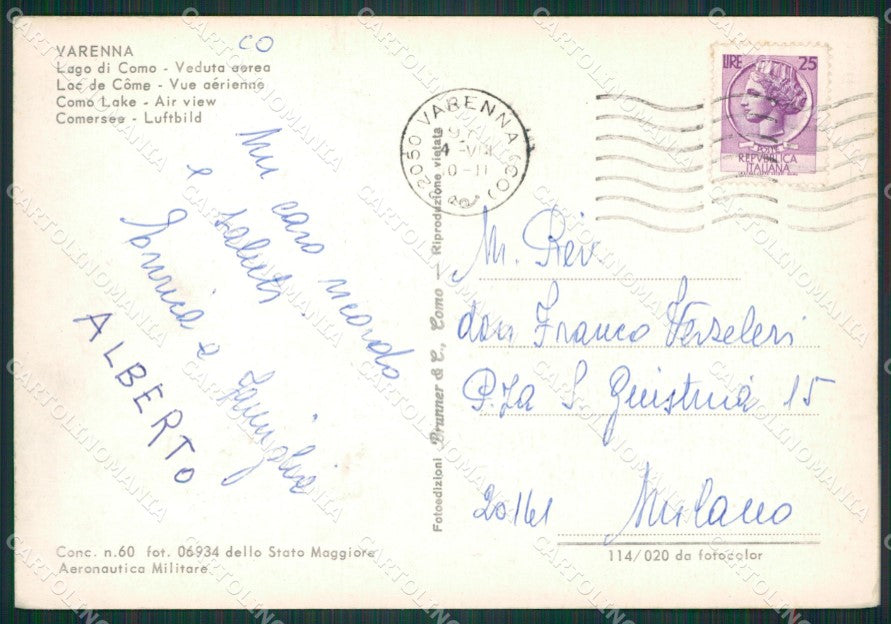 VARENNA
Lago di Como - Veduta aerea
Lac de Côme - Vue aérienne
Como Lake - Air view
Comersee - Luftbild
CO
Un caro ricordo
e saluti.
Enrica e famiglia
ALBERTO
22050 VARENNA (CO)
4 VIII
LIRE 25
POSTE
REPVBBLICA
ITALIANA
M. Rev
don Franco Verzeleri
P.za S. Giustina 15
20161 Milano
Fotoedizioni Brunner & C., Como — Riproduzione vietata
Conc. n.60 fot. 06934 dello Stato Maggiore
Aeronautica Militare.
114/020 da fotocolor
CARTOLINOMANIA